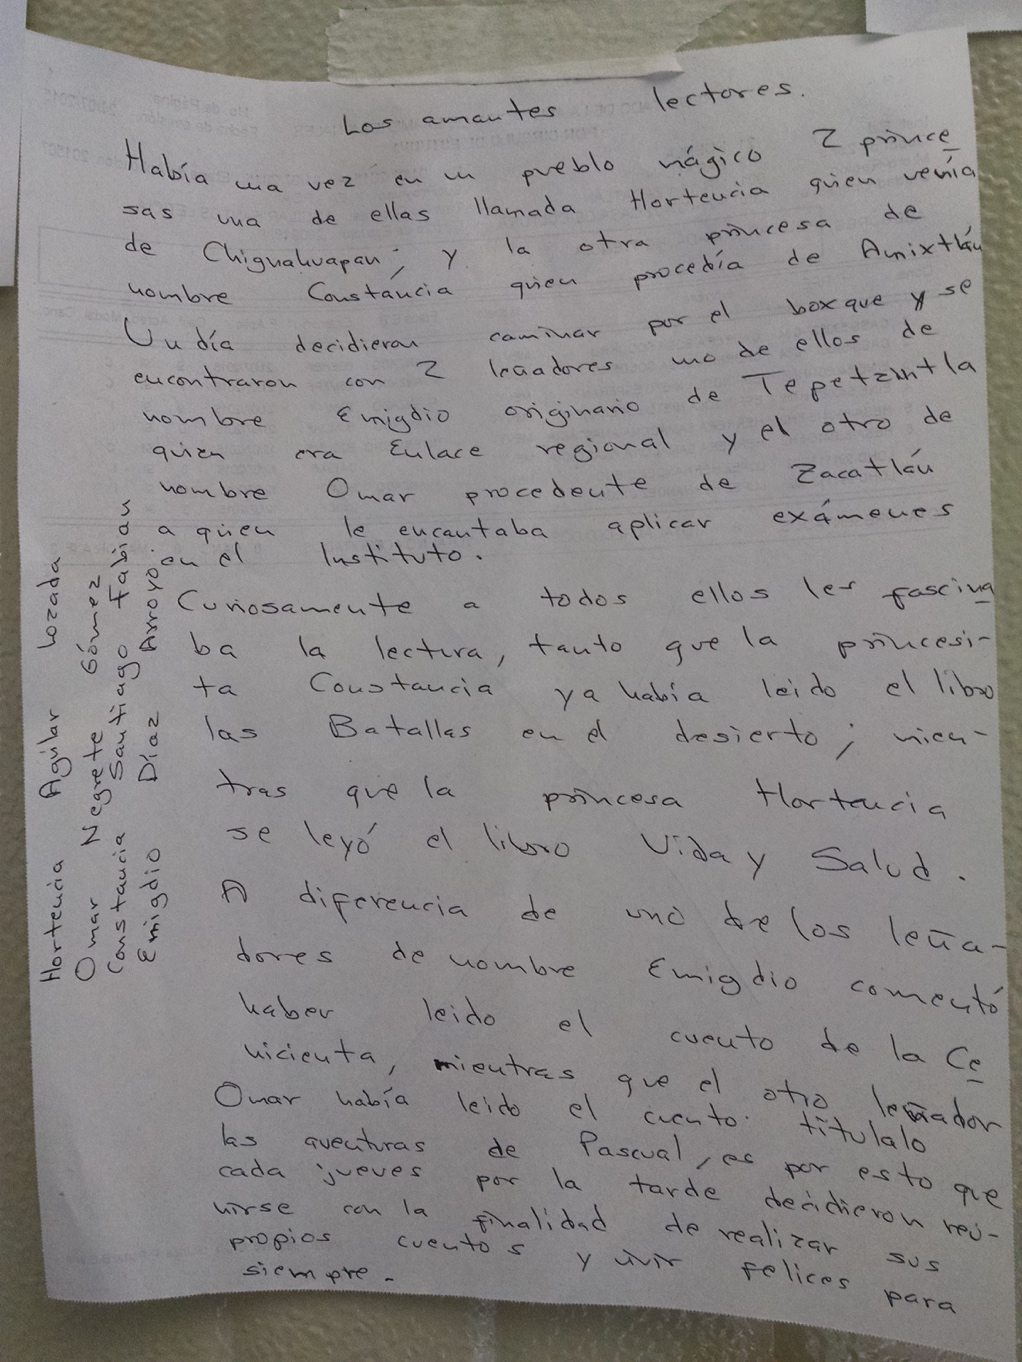 Los amantes lectores.
Había una vez en un pueblo mágico 2 prince
sas una de ellas llamada Hortencia quien venía
de Chignahuapan; y la otra princesa de
nombre Constancia quien procedía de Amixtlán
Un día decidieron caminar por el boxque y se
encontraron con 2 leñadores uno de ellos de
nombre Emigdio originario de Tepetzintla
quien era Enlace regional y el otro de
nombre Omar procedente de Zacatlán
a quien le encantaba aplicar exámenes
en el Instituto.
Curiosamente a todos ellos les fascina
ba la lectura, tanto que la princesi-
ta Constancia ya había leido el libro
las Batallas en el desierto; mien-
tras que la princesa Hortencia
se leyó el libro Vida y Salud.
A diferencia de uno de los leña-
dores de nombre Emigdio comentó
haber leido el cuento de la Ce
nicienta, mientras que el otro leñador
Omar había leido el cuento titulalo
las aventuras de Pascual, es por esto que
cada jueves por la tarde decidieron reu-
nirse con la finalidad de realizar sus
propios cuentos y vivir felices para
siempre.
Hortencia Aguilar Lozada
Omar Negrete Gómez
Constancia Santiago Fabian
Emigdio Díaz Arroyo.